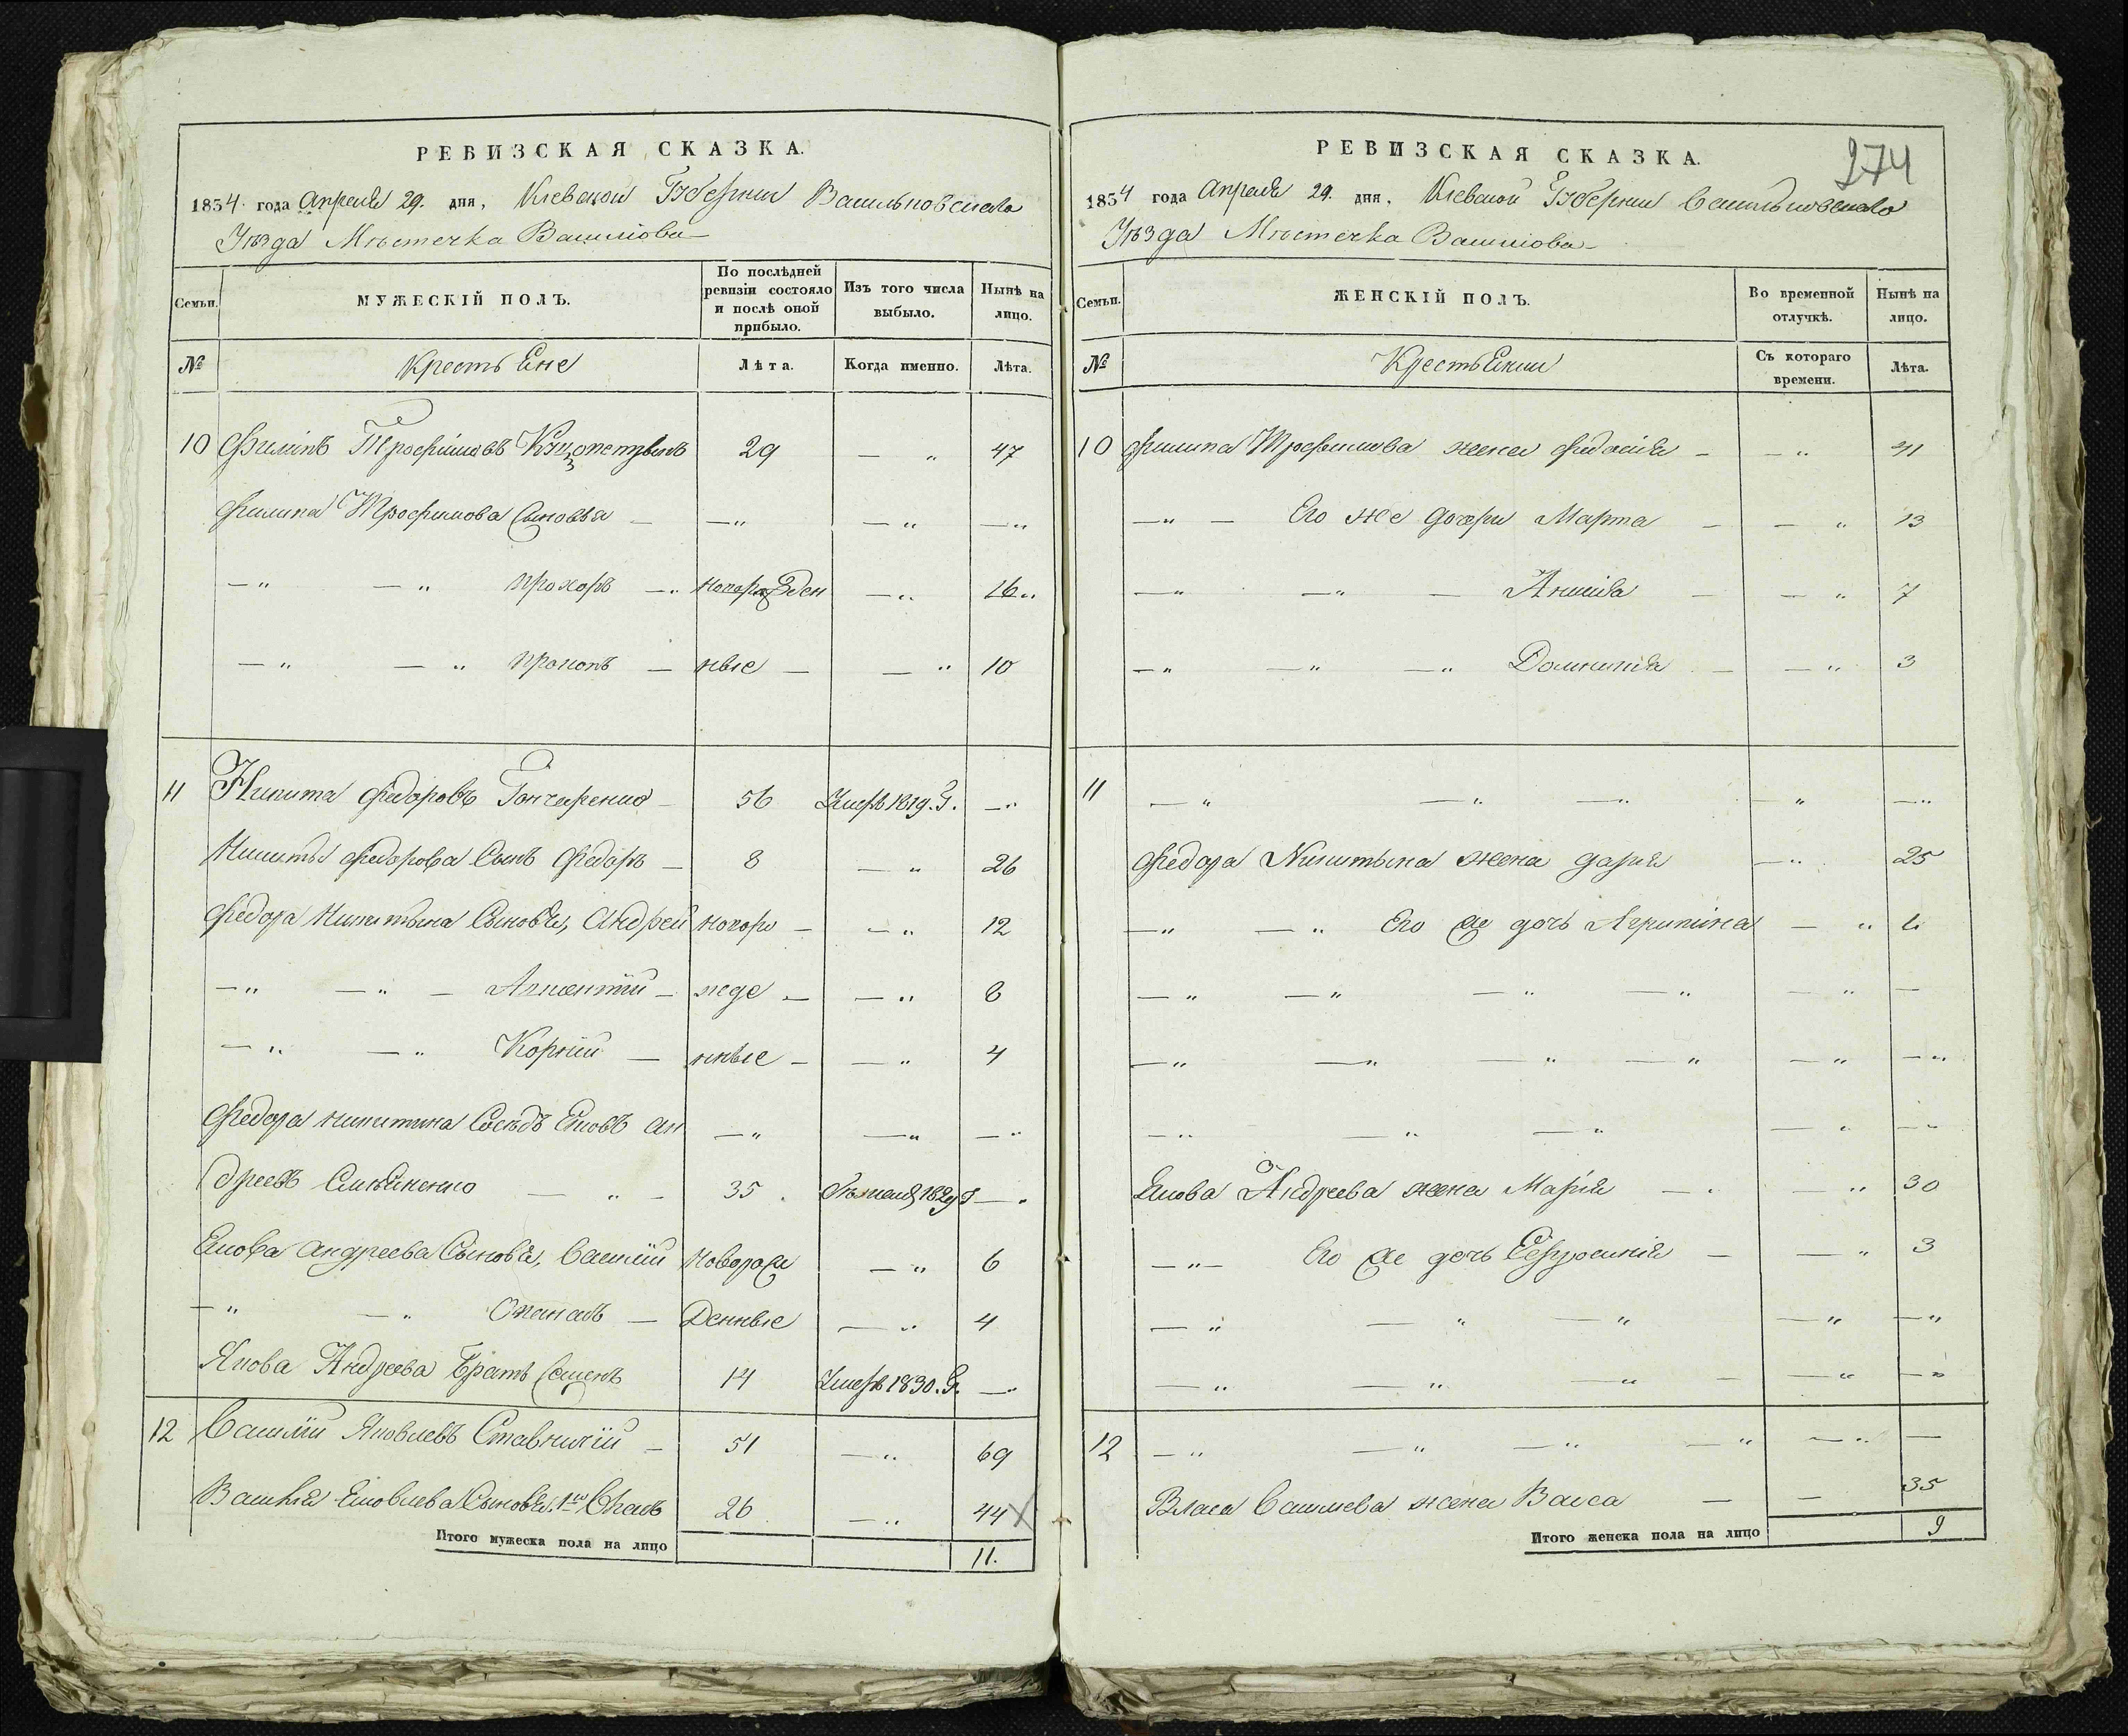 РЕВИЗСКАЯ СКАЗКА.
1834 года Апреля 29. дня, Киевской Губернии Васильковскаго
Уѣзда Мѣстечка Василкова
Семьи. МУЖЕСКІЙ ПОЛЪ. По послѣдней ревизіи состояло и послѣ оной прибыло. Изъ того числа выбыло. Нынѣ на лицо.
№ Крестьяне Лѣта. Когда именно. Лѣта.
10 Филипъ Трофимовъ 29 — „ 47
Филипа Трофимова Сыновья — — „ — „ — „
— „ — „ Прохоръ — „ новорожден — „ 16 „
— „ — „ Прокопъ — ные — — „ 10
11 Никита Федоровъ Гончаренко — 56 Умеръ 1819. г. — „
Никиты Федорова Сынъ Федоръ — 8 — „ 26
Федора Никитина Сыновья, Андрей новоро — — „ 12
— „ — „ — — жде — — „ 8
— „ — „ Корній — нные — — „ 4
Федора Никитина Сосѣдъ Яковъ Ан — „ — „ — „
дреевъ — „ — 35 . 1829 г — „
Якова Андреева Сыновья, Василій Новорож — „ 6
— „ — „ — Денные — „ 4
Якова Андреева Братъ Семенъ 14 Умеръ 1830. г. — „
12 Василій Яковлевъ Ставничій — 51 — „ 69
Василія Яковлева Сыновья, 1й Власъ 26 — „ 44
Итого мужеска пола на лицо 11.
274
РЕВИЗСКАЯ СКАЗКА.
1834 года Апреля 29. дня, Киевской Губернии Васильковскаго
Уѣзда Мѣстечка Василкова
Семьи. ЖЕНСКІЙ ПОЛЪ. Во временной отлучкѣ. Нынѣ на лицо.
№ Крестьянки Съ котораго времени. Лѣта.
10 Филипа Трофимова жена Федосія — — „ 41
— „ — Его же дочери Марта — — „ 13
— „ — „ — — — „ 7
— „ — „ — „ Домникія — — „ 3
11 — „ — „ — „ — „ — „
Федора Никитина жена Дарія — „ 25
— „ — „ Его же дочь Агрипина — „
— „ — „ — „ — „ — „ —
— „ — „ — „ — „ — „ — „
— „ — „ — „ — „ — „
Якова Андреева жена Марія — . — „ 30
— „ — Его же дочь Ефросинія — — „ 3
— „ — „ — „ — „ — „
— „ — „ — „ — — „ — „
12 — „ — „ — „ — „ — „ —
Власа Василиева жена Васса — — 35
Итого женска пола на лицо 9